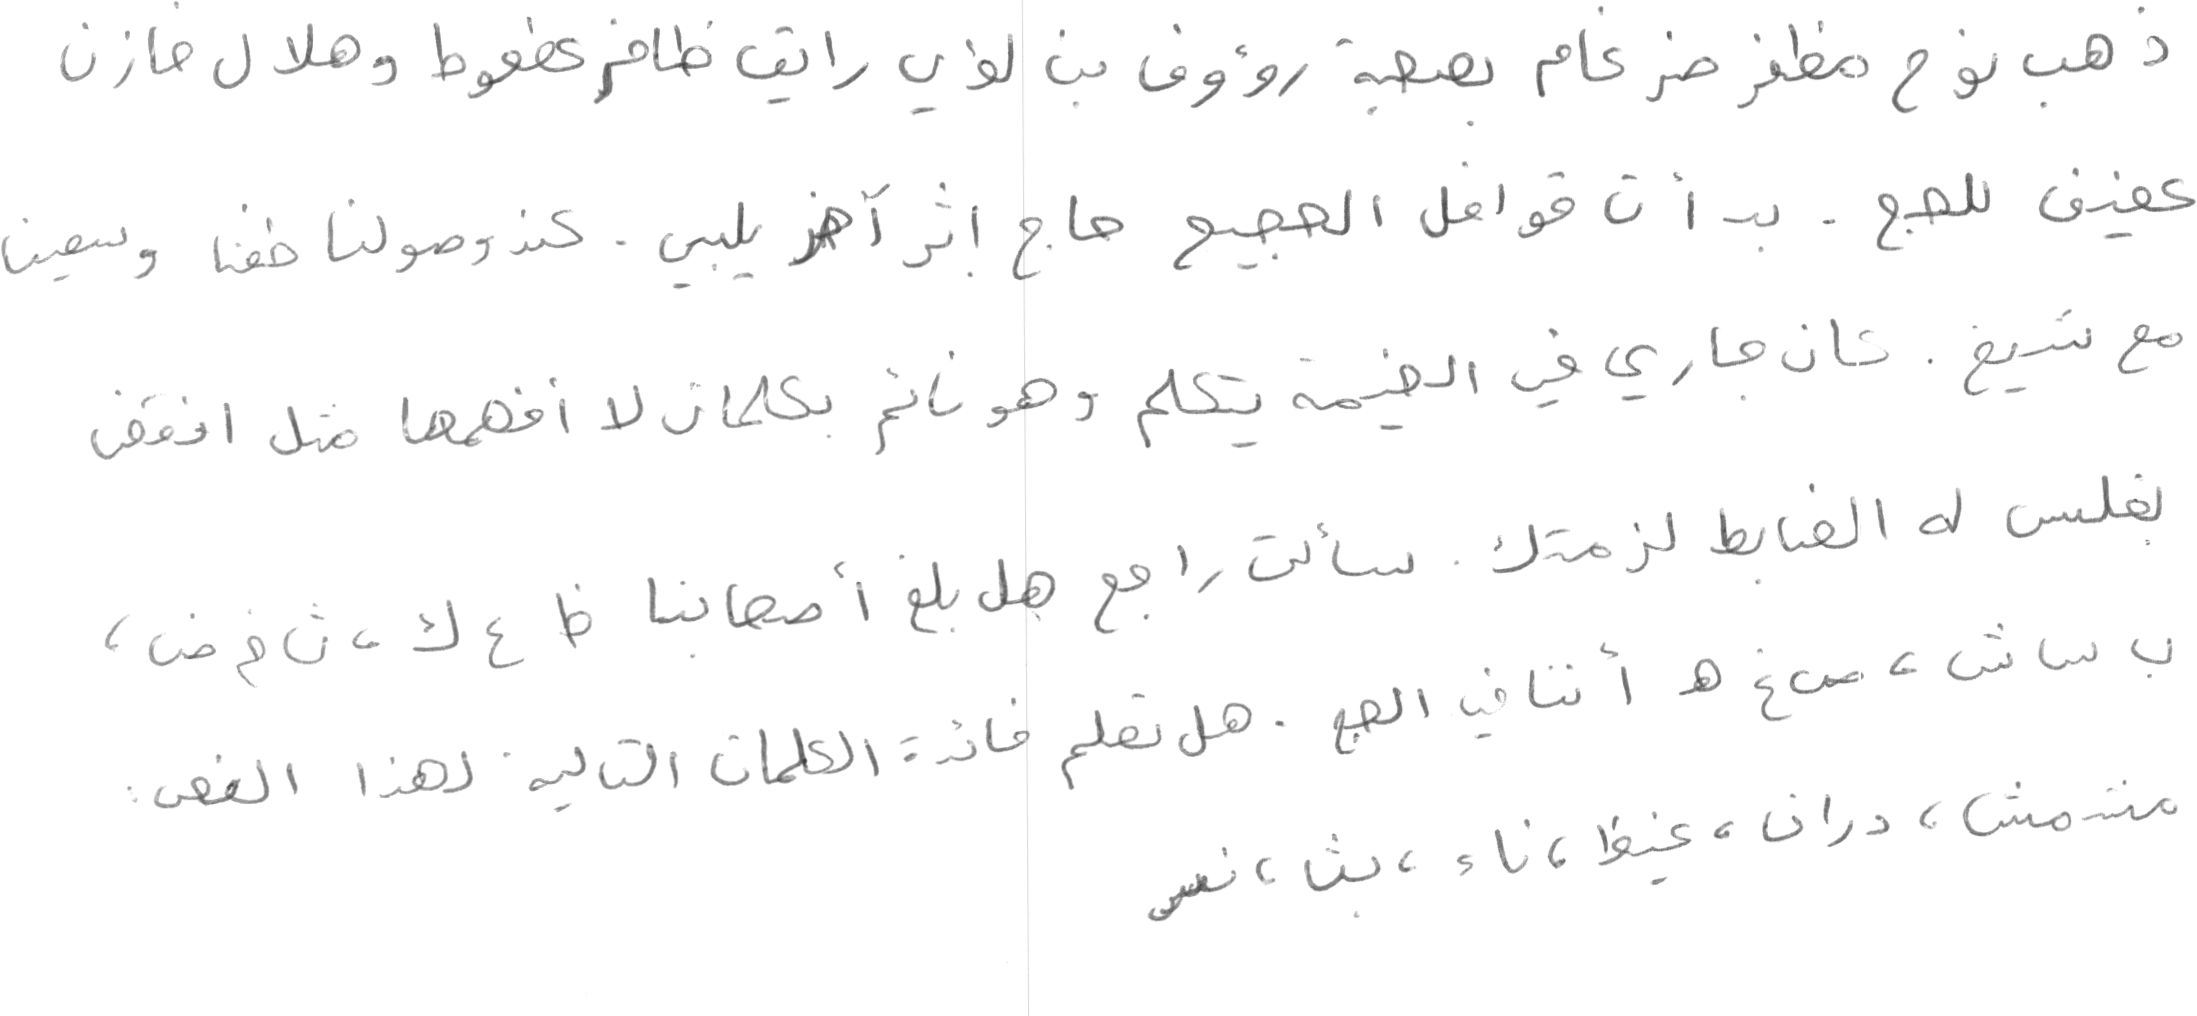 ذهب نوح مظفر ضرغام بصحبة رؤوف بن لؤي رايق ظافر عطعوط وهلال خازن
عفيف للحج . بدأت قوافل الحجيج حاج إثر آخر يلبي . عند وصولنا طفنا وسعينا
مع شيخ . كان جاري في الخيمة يتكلم وهو نائم بكلمات لا أفهمها مثل انقض
بغلس له الضابط لزمتك . سألت راجع هل بلغ أصحابنا ظ ع ك ، ث خ ض ،
ب سا ش ، ص غ هـ أننا في الحج . هل تعلم فائدة الكلمات التالية لهذا النص :
مشمش ، دران ، غيظ ، ناء ، بث ، نص